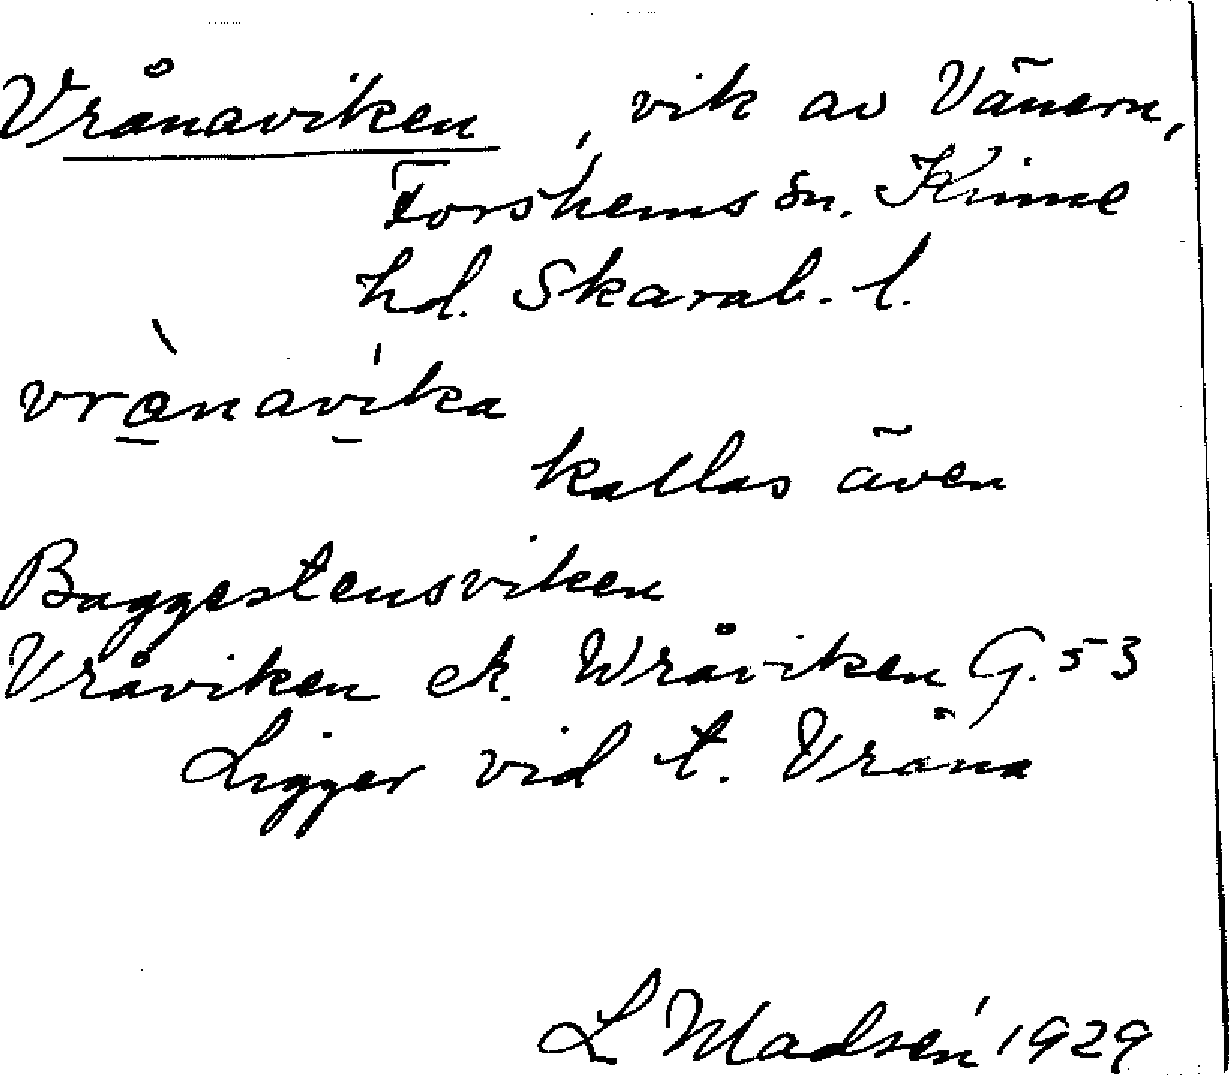 Vrånaviken, vik av Vänern,
Forshems sn. Kinne
hd. Skarab. l.
vrànavíka
kallas även
Baggestensviken
Vråviken ek. Wråviken G. 53
Ligger vid t. Vråna
L Madsén 1929